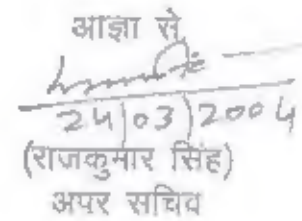 आज्ञा से
24|03|2004
(राजकुमार सिंह)
अपर सचिव